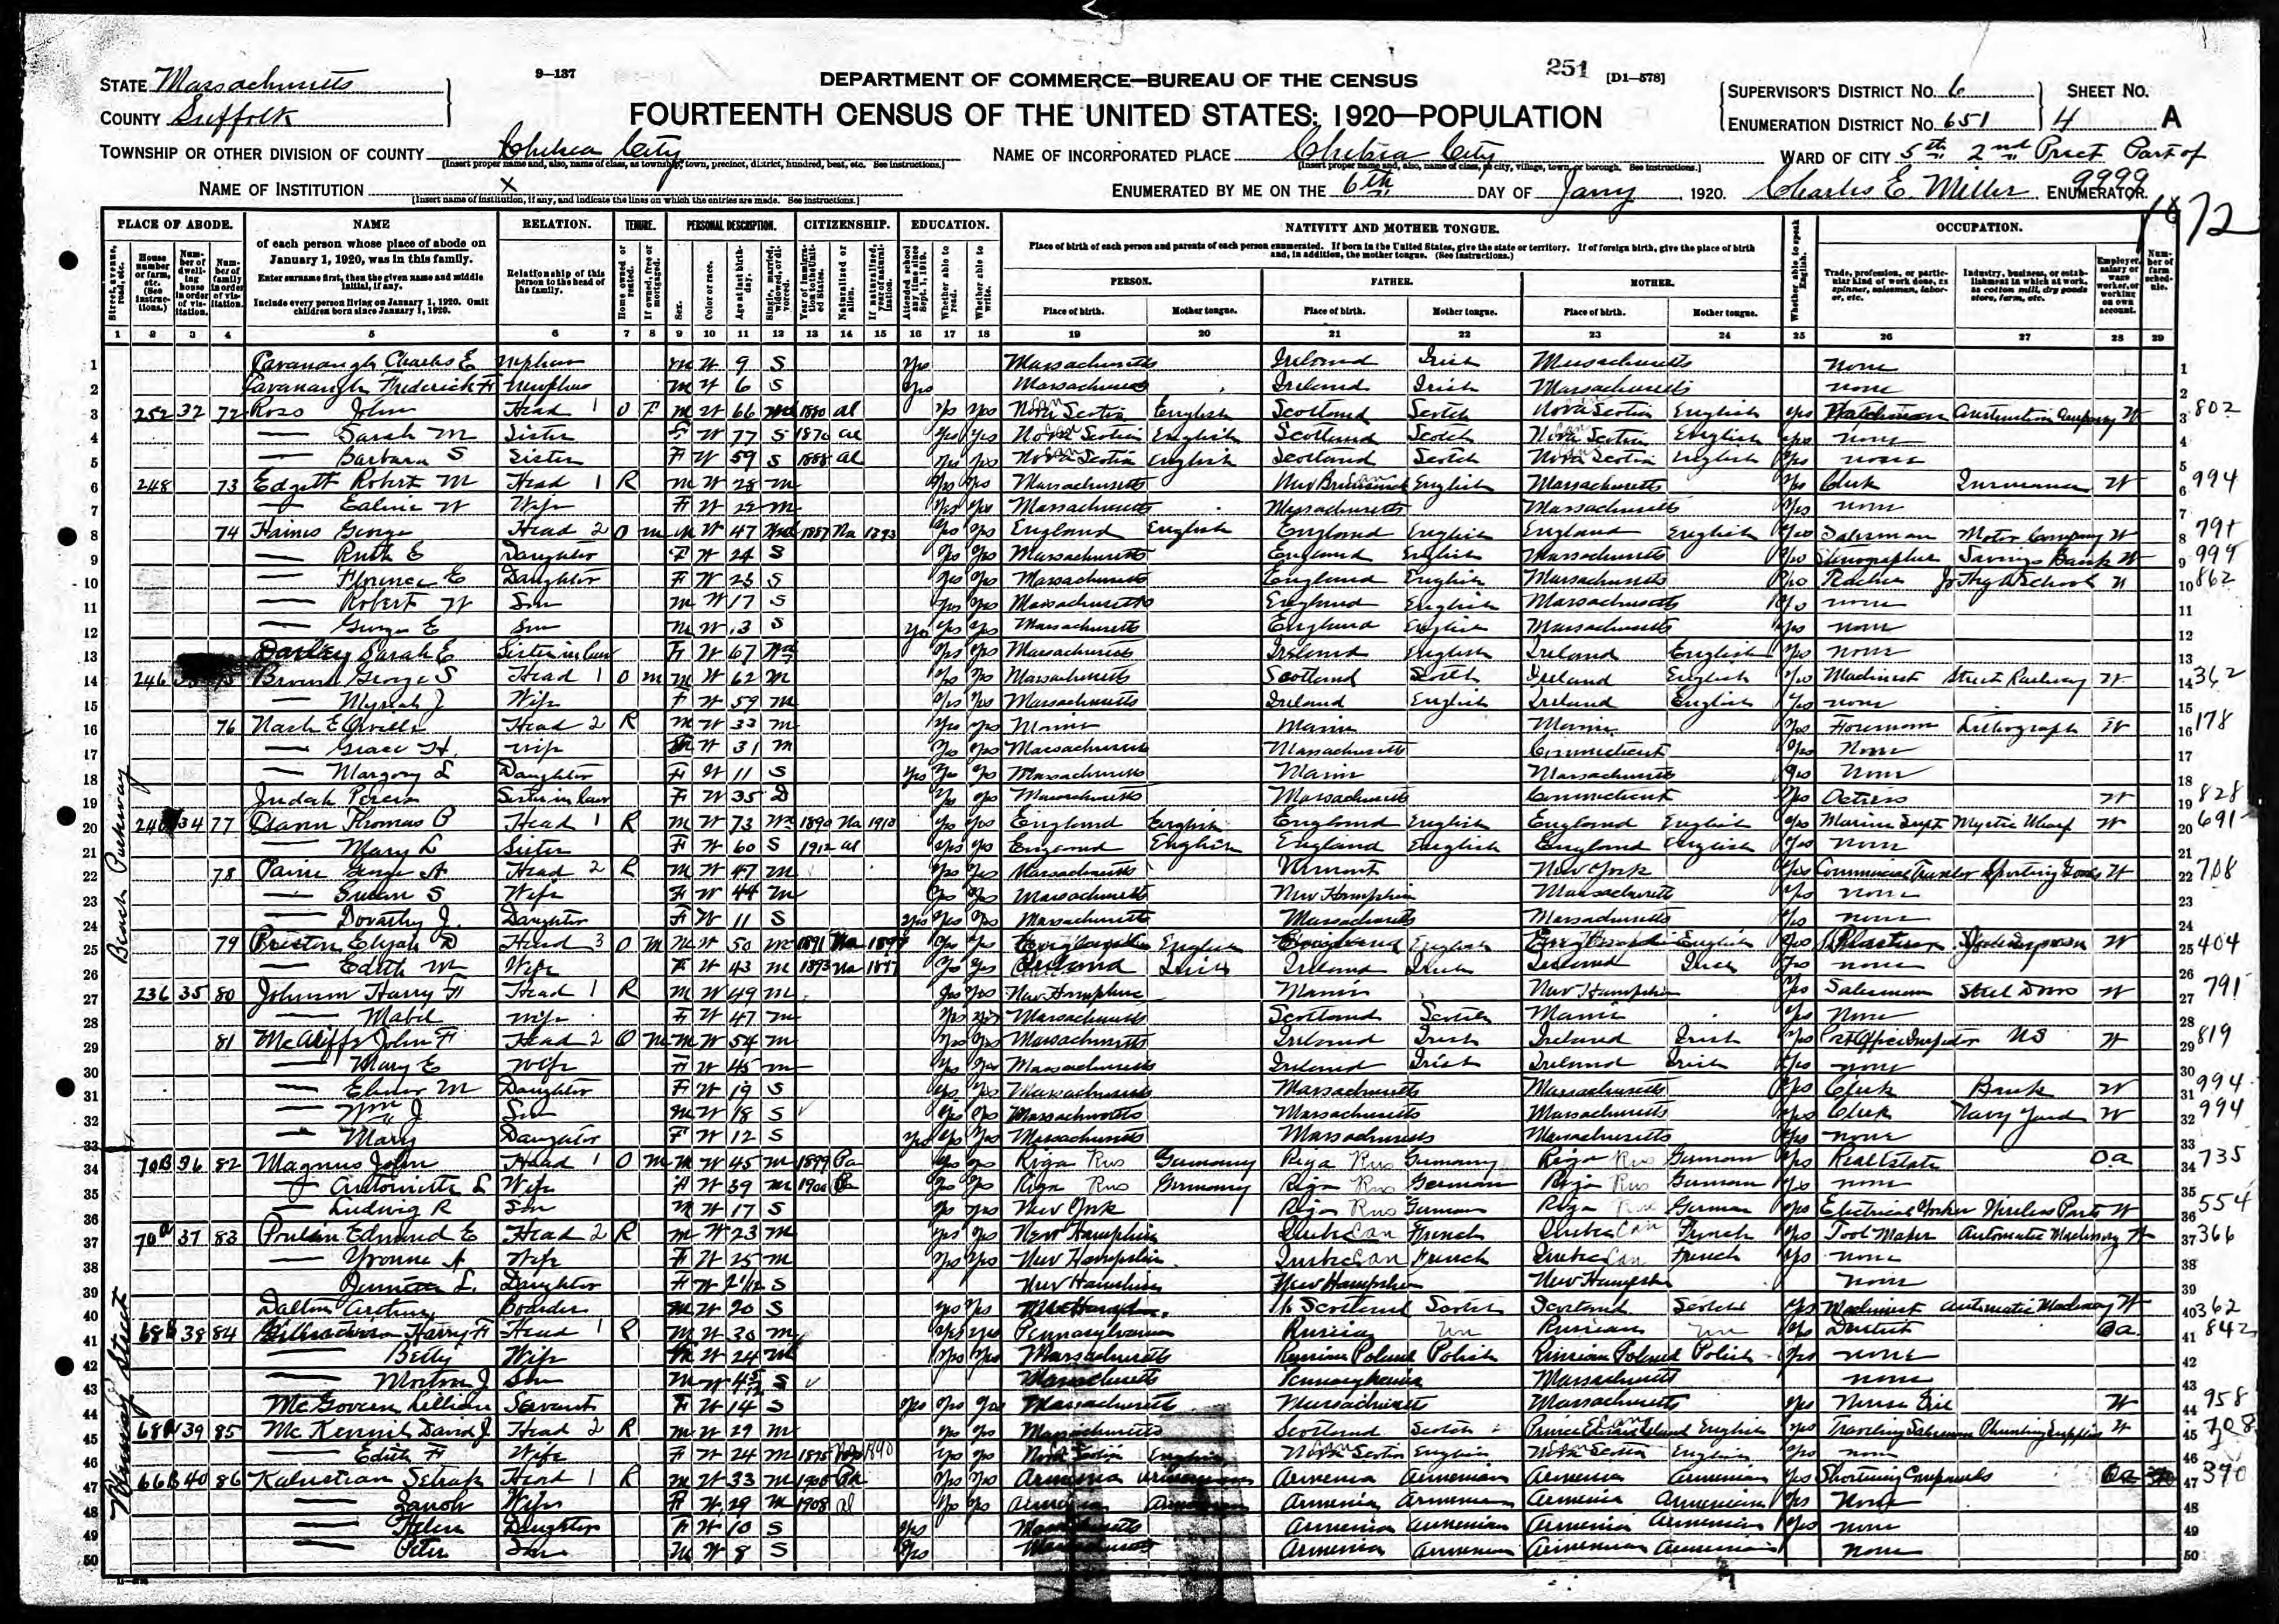 251 [D1-578]
9-137
DEPARTMENT OF COMMERCE—BUREAU OF THE CENSUS
FOURTEENTH CENSUS OF THE UNITED STATES: 1920—POPULATION
STATE Massachusetts
COUNTY Suffolk
SUPERVISOR'S DISTRICT No. 6
ENUMERATION DISTRICT No. 651
SHEET No. 4 A
TOWNSHIP OR OTHER DIVISION OF COUNTY Chelsea City
[Insert proper name and, also, name of class, as township, town, precinct, district, hundred, beat, etc. See instructions.]
NAME OF INCORPORATED PLACE Chelsea City
[Insert proper name and, also, name of class, as city, village, town, or borough. See instructions.]
WARD OF CITY 5th 2nd Prect Part of
NAME OF INSTITUTION X
[Insert name of institution, if any, and indicate the lines on which the entries are made. See instructions.]
ENUMERATED BY ME ON THE 6th DAY OF Jany, 1920. Charles E. Miller ENUMERATOR.
9999
PLACE OF ABODE. NAME RELATION. TENURE. PERSONAL DESCRIPTION. CITIZENSHIP. EDUCATION. NATIVITY AND MOTHER TONGUE. OCCUPATION.
of each person whose place of abode on January 1, 1920, was in this family.
Enter surname first, then the given name and middle initial, if any.
Include every person living on January 1, 1920. Omit children born since January 1, 1920.
Relationship of this person to the head of the family.
Place of birth of each person and parents of each person enumerated. If born in the United States, give the state or territory. If of foreign birth, give the place of birth and, in addition, the mother tongue. (See instructions.)
PERSON. FATHER. MOTHER.
Place of birth. Mother tongue. Place of birth. Mother tongue. Place of birth. Mother tongue.
1 2 3 4 5 6 7 8 9 10 11 12 13 14 15 16 17 18 19 20 21 22 23 24 25 26 27 28 29
1 Cavanaugh Charles E Nephew M W 9 S Yes Massachusetts Ireland Irish Massachusetts none
2 Cavanaugh Frederick F Nephew M W 6 S Yes Massachusetts Ireland Irish Massachusetts none
3 252 32 72 Ross John Head 1 O F M W 66 1880 al Yes Yes Nova Scotia English Scotland Scotch Nova Scotia English Yes Watchman W 802
4 — Sarah M Sister F W 77 S 1870 al Yes Yes Nova Scotia English Scotland Scotch Nova Scotia English Yes none
5 — Barbara S Sister F W 59 S 1888 al Yes Yes Nova Scotia English Scotland Scotch Nova Scotia English Yes none
6 248 73 Edgett Robert M Head 1 R M W 28 M Yes Yes Massachusetts New Brunswick English Massachusetts Yes Clerk Insurance W 994
7 — W Wife F W 22 M Yes Yes Massachusetts Massachusetts Massachusetts Yes none
8 74 Haines George Head 2 O M M W 47 1887 Na 1893 Yes Yes England English England English England English Yes Salesman Motor Company W 791
9 — Ruth E Daughter F W 24 S Yes Yes Massachusetts England English Massachusetts Yes Stenographer Savings Bank W 999
10 — Florence E Daughter F W 23 S Yes Yes Massachusetts England English Massachusetts Yes Teacher School W 862
11 — Robert W Son M W 17 S Yes Yes Massachusetts England English Massachusetts Yes none
12 — George E Son M W 13 S Yes Yes Yes Massachusetts England English Massachusetts Yes none
13 Sarah E Sister in law F W 67 Wd Yes Yes Massachusetts Ireland English Ireland English Yes none
14 246 Brown George S Head 1 O M M W 62 M Yes Yes Massachusetts Scotland Scotch Ireland English Yes Machinist Street Railway W 362
15 — J Wife F W 59 M Yes Yes Massachusetts Ireland English Ireland English Yes none
16 76 Nash E Orville Head 2 R M W 33 M Yes Yes Maine Maine Maine Yes Foreman Lithograph W 178
17 — Grace H. Wife F W 31 M Yes Yes Massachusetts Massachusetts Connecticut Yes None
18 — Margory L Daughter F W 11 S Yes Yes Yes Massachusetts Maine Massachusetts Yes None
19 Judah Sister in law F W 35 D Yes Yes Massachusetts Massachusetts Connecticut Yes Actress W 828
20 34 77 Thomas Head 1 R M W 73 Wd 1890 Na 1910 Yes Yes England English England English England English Yes Marine Supt Mystic Wharf W 691
21 — Mary L Sister F W 60 S 1912 al Yes Yes England English England English England English Yes None
22 78 Paine George A Head 2 R M W 47 M Yes Yes Massachusetts Vermont New York Yes Commercial Traveler Sporting Goods W 708
23 — Susan S Wife F W 44 M Yes Yes Massachusetts New Hampshire Massachusetts Yes none
24 — Dorothy J. Daughter F W 11 S Yes Yes Yes Massachusetts Massachusetts Massachusetts Yes none
25 79 Preston Elijah R Head 3 O M M W 50 M 1891 Na 1897 Yes Yes England English England English England English Yes W 404
26 — Edith M Wife F W 43 M 1893 Na 1897 Yes Yes Ireland Irish Ireland Irish Ireland Irish Yes none
27 236 35 80 Johnson Harry F Head 1 R M W 49 M Yes Yes New Hampshire Maine New Hampshire Yes Salesman Steel Doors W 791
28 — Mabel Wife F W 47 M Yes Yes Massachusetts Scotland Scotch Maine Yes None
29 81 McAliffe John F Head 2 O M M W 54 M Yes Yes Massachusetts Ireland Irish Ireland Irish Yes Post Office Inspector US W 819
30 — Mary E Wife F W 45 M Yes Yes Massachusetts Ireland Irish Ireland Irish Yes none
31 — Elinor M Daughter F W 19 S Yes Yes Massachusetts Massachusetts Massachusetts Yes Clerk Bank W 994
32 — Wm J. Son M W 18 S Yes Yes Massachusetts Massachusetts Massachusetts Yes Clerk Navy Yard W 994
33 — Mary Daughter F W 12 S Yes Yes Yes Massachusetts Massachusetts Massachusetts Yes none
34 70B 36 82 Magnus John Head 1 O M M W 45 M 1899 Pa Yes Yes Riga Rus Germany Riga Rus Germany Riga Rus German Yes Real Estate Oa 735
35 — Antoinette L Wife F W 39 M 1900 Pa Yes Yes Riga Rus Germany Riga Rus German Riga Rus German Yes none
36 — Ludwig R Son M W 17 S Yes Yes New York Riga Rus German Riga Rus German Yes Electrical Worker Wireless Parts W 554
37 70a 37 83 Poulin Edmund E Head 2 R M W 23 M Yes Yes New Hampshire Quebec Can French Quebec Can French Yes Tool Maker Automatic Machinery W 366
38 — Yvonne A Wife F W 25 M Yes Yes New Hampshire Quebec Can French Quebec Can French Yes none
39 L. Daughter F W S New Hampshire New Hampshire New Hampshire none
40 Dalton Arthur Boarder M W 20 S Yes Yes Scotland Scotch Scotland Scotch Yes Machinist Automatic Machinery W 362
41 68B 38 84 Harry F Head 1 R M W 30 M Yes Yes Pennsylvania Russia Russian Yes Dentist Oa 842
42 — Betty Wife F W 24 M Yes Yes Massachusetts Russian Poland Polish Russian Poland Polish Yes none
43 — Morton J Son M W S Massachusetts Pennsylvania Massachusetts none
44 McGovern Lillian Servant F W 14 S Yes Yes Yes Massachusetts Massachusetts Massachusetts Yes Nurse Girl W 958
45 68A 39 85 McKennie David J Head 2 R M W 29 M Yes Yes Massachusetts Scotland Scotch Prince Edward Island English Yes Traveling Salesman Plumbing Supplies W 708
46 — Edith F Wife F W 24 M 1895 1890 Yes Yes Nova Scotia English Nova Scotia English Nova Scotia English Yes none
47 66B 40 86 Kalustian Setrak Head 1 R M W 33 M Yes Yes Armenia Armenian Armenia Armenian Armenia Armenian Yes Oa 390
48 — Zarouh Wife F W 29 M 1908 al Yes Yes Armenia Armenian Armenia Armenian Armenia Armenian Yes None
49 — Helen Daughter F W 10 S Yes Massachusetts Armenia Armenian Armenia Armenian Yes none
50 — Peter Son M W 8 S Yes Massachusetts Armenia Armenian Armenia Armenian none
Beach Parkway
Street